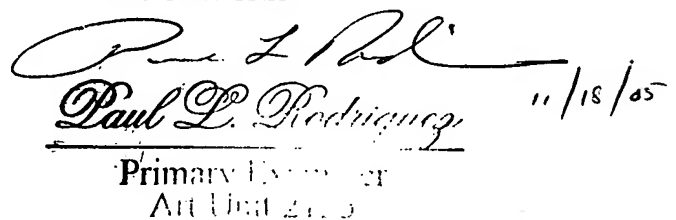 Paul L. Rodriguez 11/18/05
Primary
Art Unit